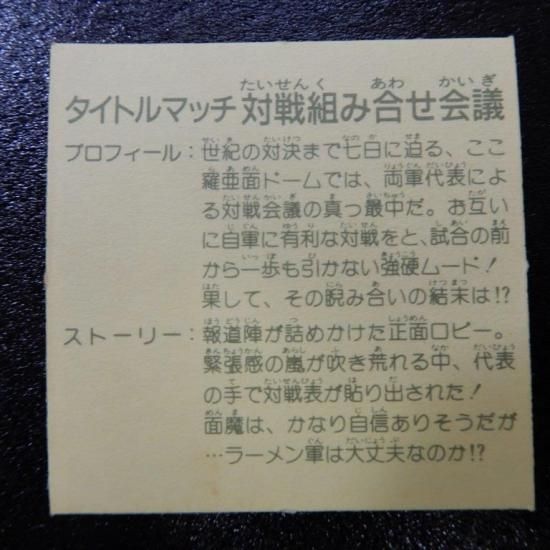 タイトルマッチ対戦組み合せ会議
プロフィール：世紀の対決まで七日に迫る、ここ
羅亜面ドームでは、両軍代表によ
る対戦会議の真っ最中だ。お互い
に自軍に有利な対戦をと、試合の前
から一歩も引かない強硬ムード！
果して、その睨み合いの結末は!?
ストーリー：報道陣が詰めかけた正面ロビー。
緊張感の嵐が吹き荒れる中、代表
の手で対戦表が貼り出された！
面魔は、かなり自信ありそうだが
…ラーメン軍は大丈夫なのか!?